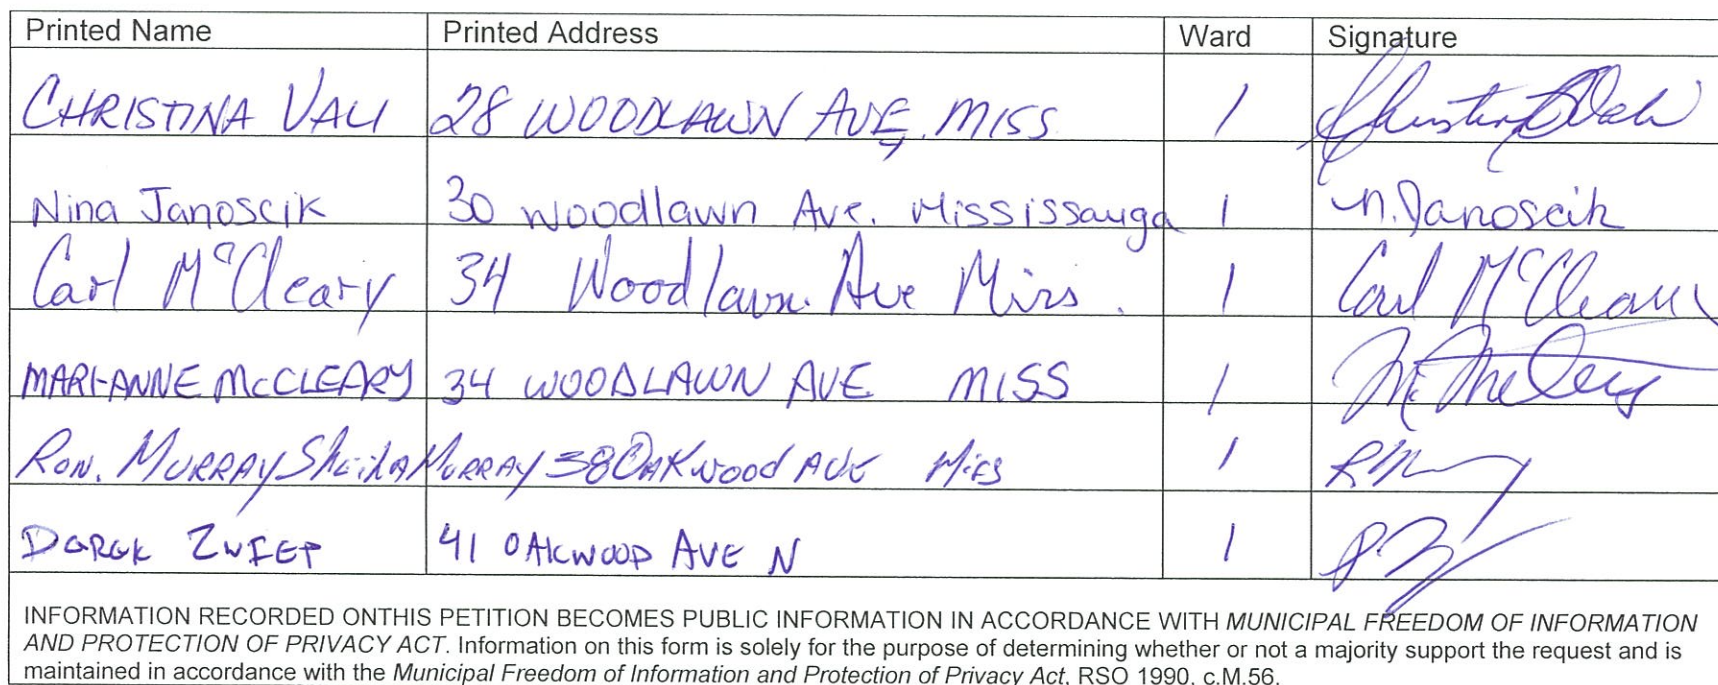 Printed Name Printed Address Ward Signature
CHRISTINA VALI 28 WOODLAWN AVE, MISS 1
Nina Janoscik 30 Woodlawn Ave. Mississauga 1 N. Janoscik
Carl McCleary 34 Woodlawn Ave Miss. 1 Carl McCleary
MARI-ANNE MCCLEARY 34 WOODLAWN AVE MISS 1
RON. MURRAY Sheila MURRAY 38 OAKwood AVE Miss 1
DEREK ZWIEP 41 OAKWOOD AVE N 1
INFORMATION RECORDED ONTHIS PETITION BECOMES PUBLIC INFORMATION IN ACCORDANCE WITH MUNICIPAL FREEDOM OF INFORMATION
AND PROTECTION OF PRIVACY ACT. Information on this form is solely for the purpose of determining whether or not a majority support the request and is
maintained in accordance with the Municipal Freedom of Information and Protection of Privacy Act, RSO 1990, c.M.56.